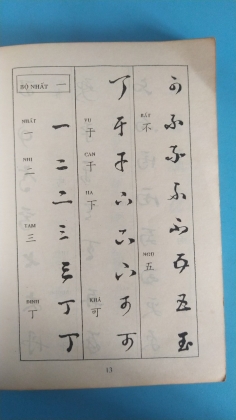 BỘ NHẤT 一
NHẤT
一 一
NHỊ
二 二
二
TAM
三 三
三
ĐINH
丁 丁
丁
丁
VU
于 于
CAN
干 干
HẠ
下 下
下
下
KHẢ
可 可
可
可
BẤT
不 不
不
不
不
NGŨ
五 五
五
五
13